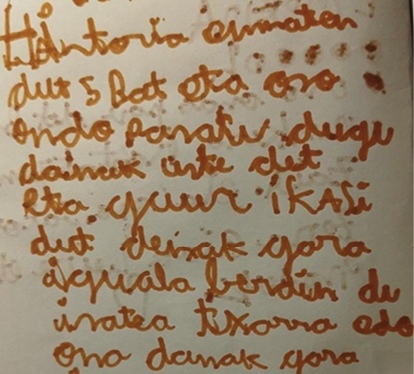 Hintoria ematen
dut 5 Bat eta oso
ondo Pasatu dugu
dainak uste dut
eta gaur iKASi
dut deixak gara
iguala berdin du
izatea txarra edo
ona danak gara